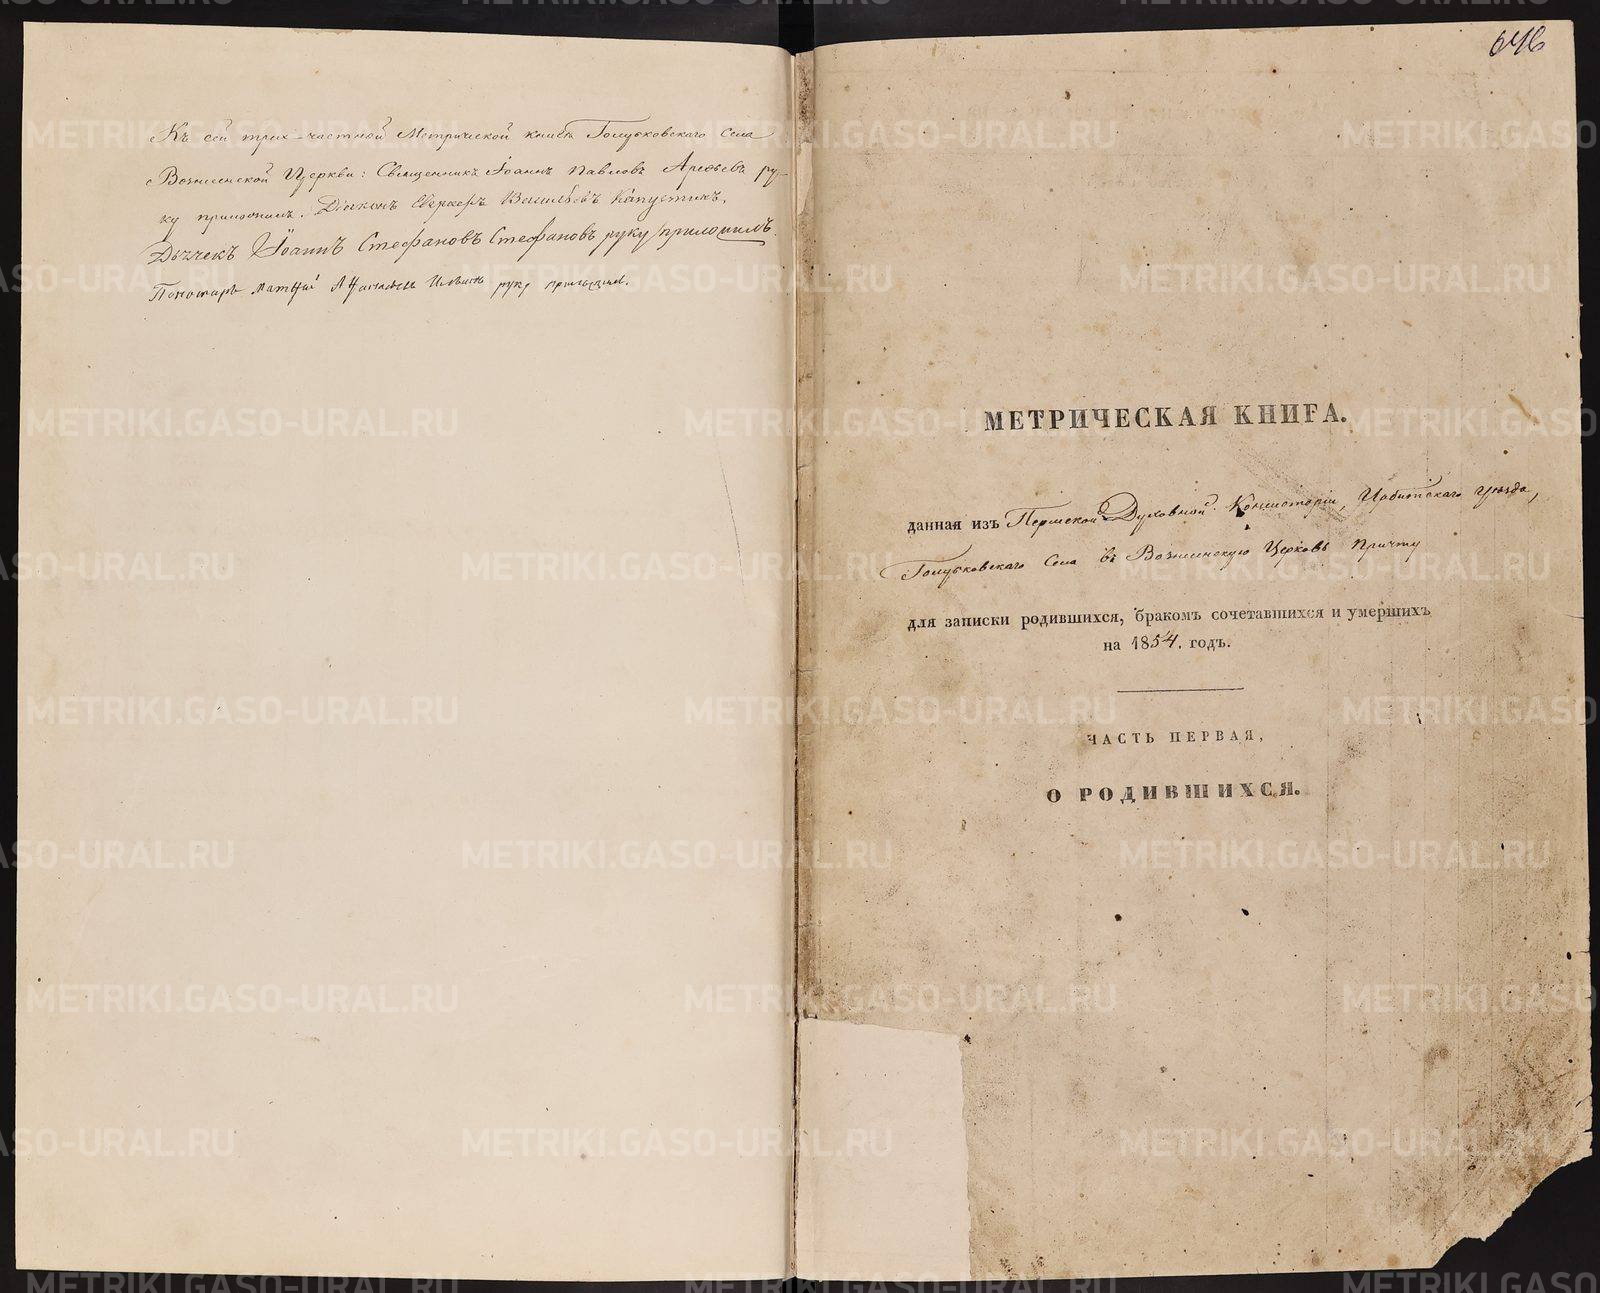 Къ сей трех-частной Метрической книге Голубковскаго Села
Вознесенской Церкви: Священникъ Іоаннъ Павловъ Арефьевъ ру-
ку приложилъ. Діаконъ Капустинъ,
Дьячекъ Іоаннъ Стефановъ Стефановъ руку приложилъ.
Пономарь руку приложилъ.
646
МЕТРИЧЕСКАЯ КНИГА.
данная изъ Пермской Духовной Консисторіи, Ирбитскаго уѣзда,
Голубковскаго Села въ Вознесенскую Церковь Причту
для записки родившихся, бракомъ сочетавшихся и умершихъ
на 1854. годъ.
ЧАСТЬ ПЕРВАЯ,
О РОДИВШИХСЯ.
METRIKI.GASO-URAL.RU